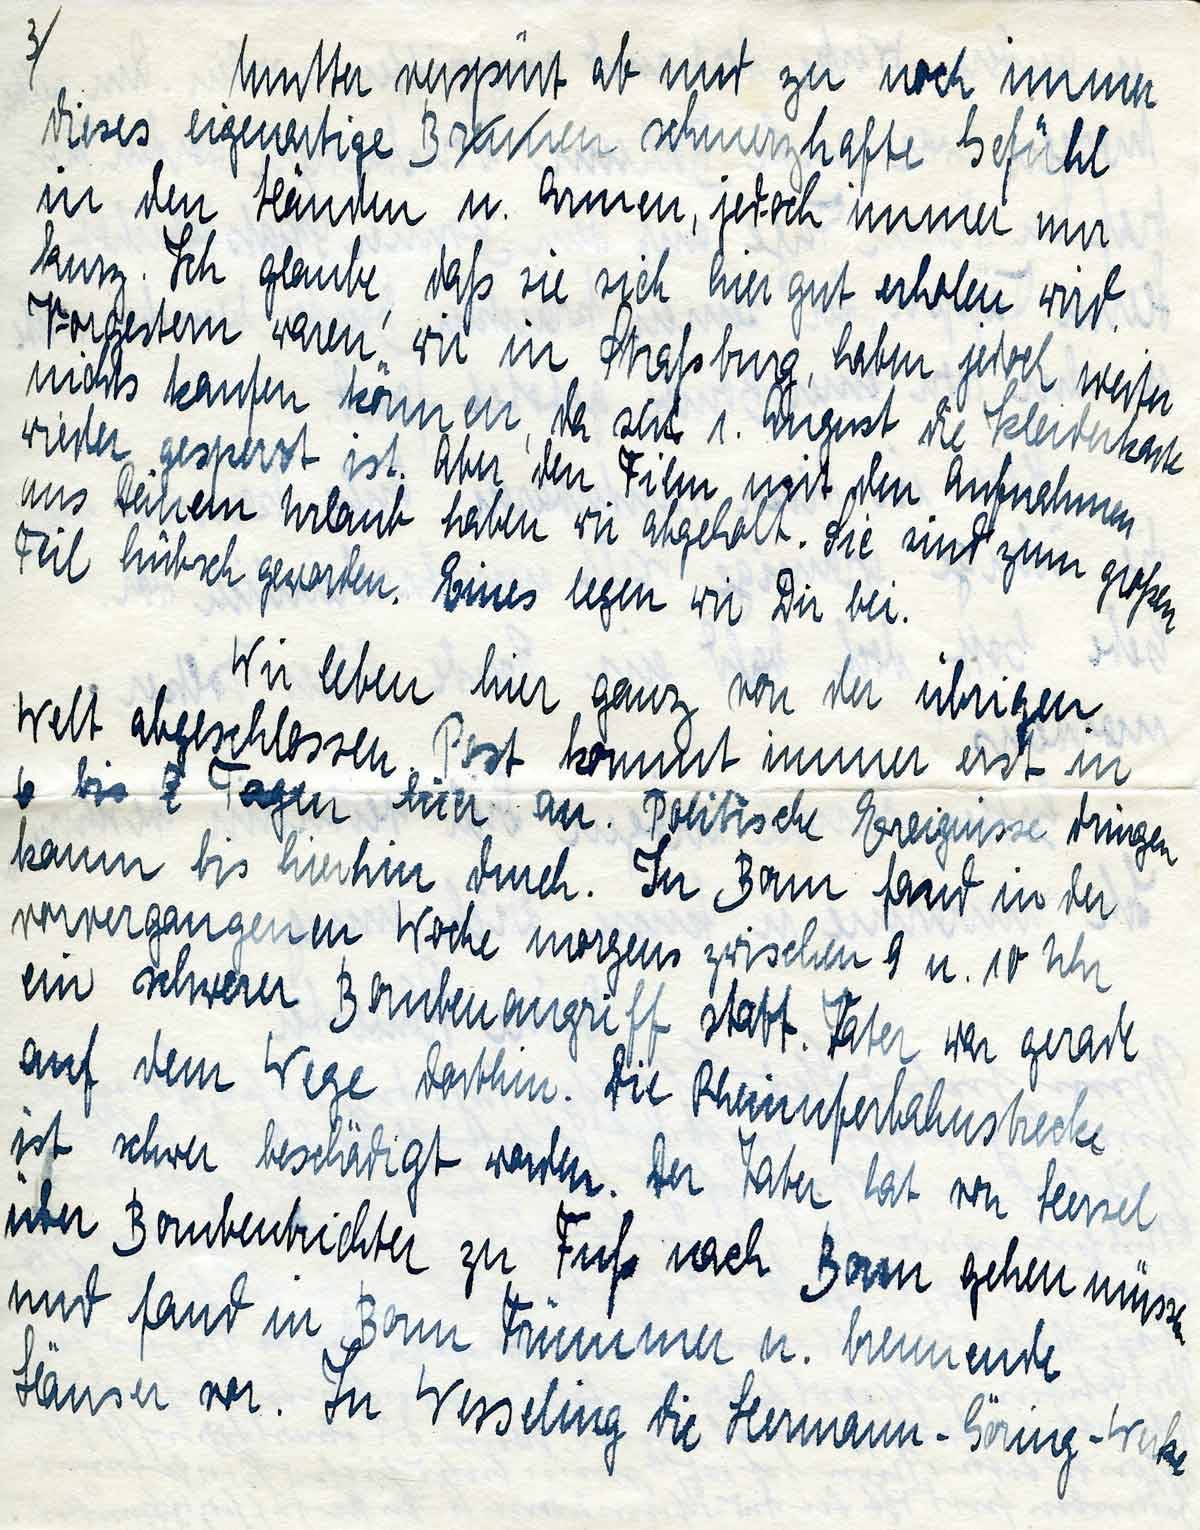 3/
Mutter verspürt ab und zu noch immer
dieses eigenartige Brennen schmerzhafte Gefühl
in den Händen u. Armen, jedoch immer nur
kurz. Ich glaube, daß sie sich hier gut erholen wird.
Vorgestern waren wir in Straßburg, haben jedoch weiter
nichts kaufen können, da seit 1. August die Kleiderkarte
wieder gesperrt ist. Aber den Film mit den Aufnahmen
aus Deinem Urlaub haben wir abgeholt. Sie sind zum großen
Teil hübsch geworden. Eines legen wir Dir bei.
Wir leben hier ganz von der übrigen
Welt abgeschlossen. Post kommt immer erst in
6 bis Tagen hier an. Politische Ereignisse dringen
kaum bis hierhin durch. In Bonn fand in der
vorvergangenen Woche morgens zwischen 9 u. 10 Uhr
ein schwerer Bombenangriff statt. Vater war gerade
auf dem Wege dorthin. Die Rheinuferbahnstrecke
ist schwer beschädigt worden. Der Vater hat von Hersel
über Bombentrichter zu Fuß nach Bonn gehen müssen
und fand in Bonn Trümmer u. brennende
Häuser vor. In Wesseling die Hermann-Göring-Werke